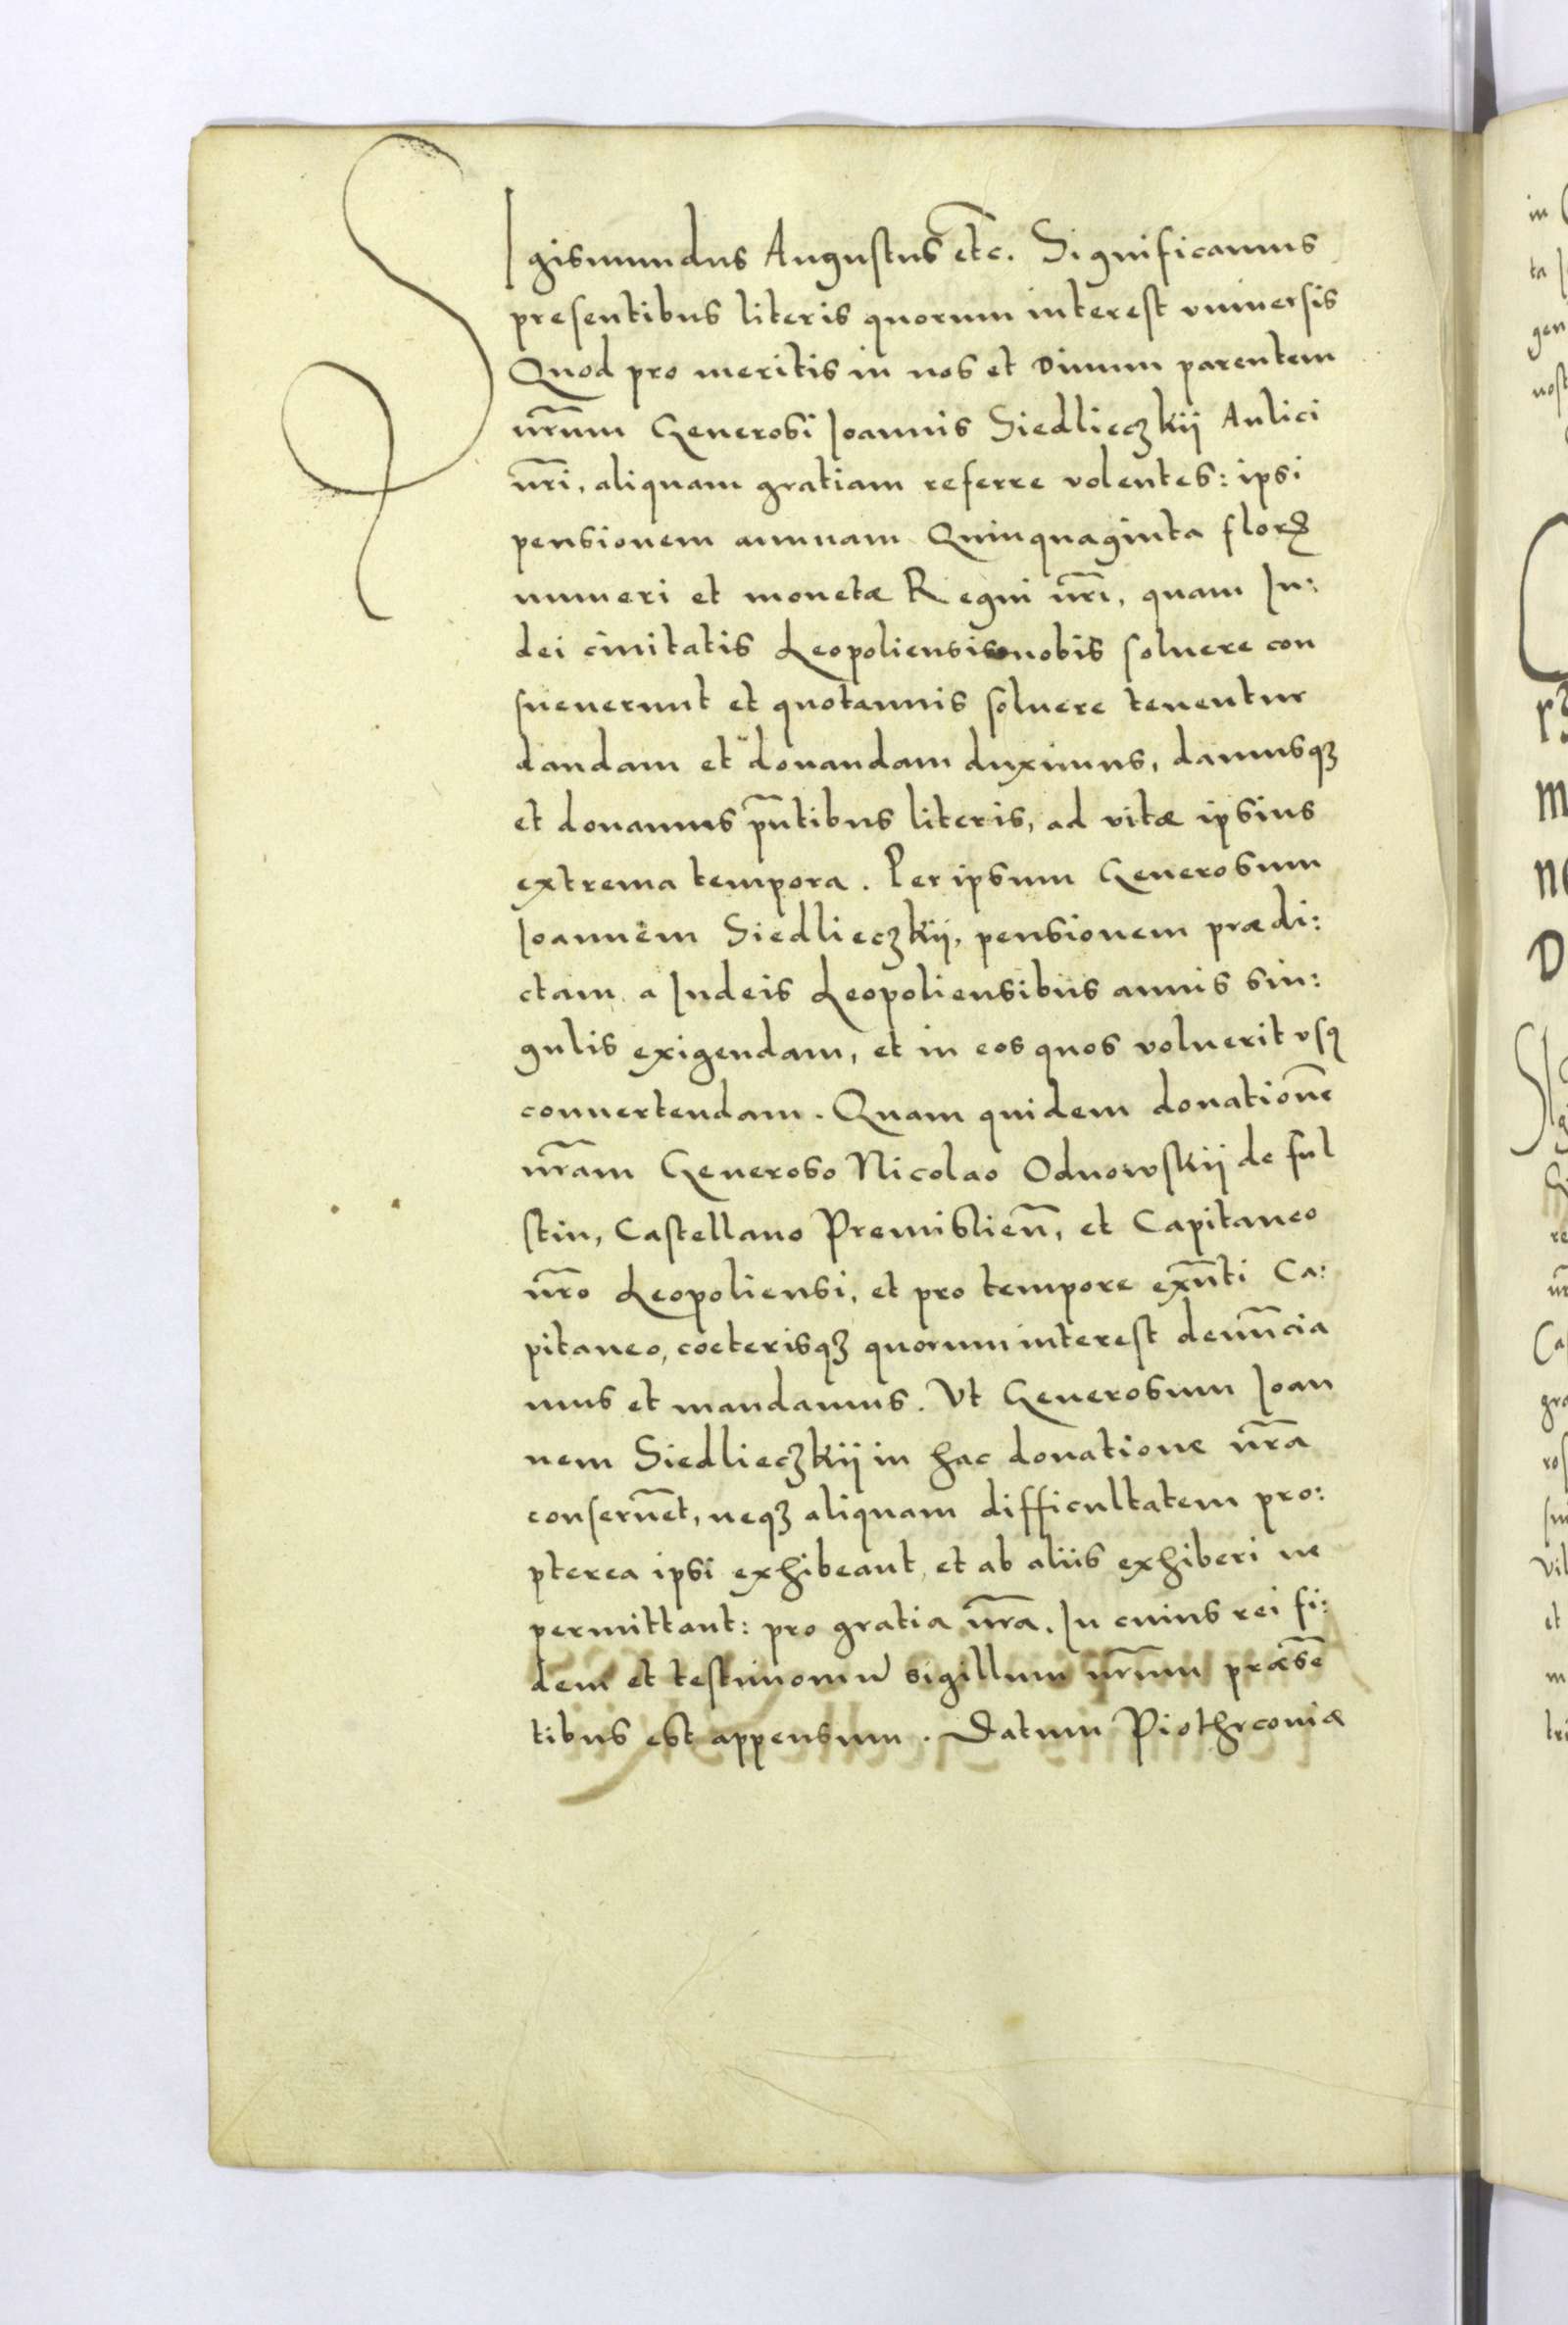 SIgismundus Augustus etc. Significamus
presentibus literis quorum interest vniuersis
Quod pro meritis in nos et Diuum parentem
nr̃um Generosi Ioannis Siedlieczkij Aulici
nr̃i, aliquam gratiam referre volentes: ipsi
pensionem annuam Quinquaginta florꝝ
numeri et monetæ Regni nr̃i, quam Iu:
dei ciuitatis Leopoliensis nobis soluere con
sueuerunt et quotannis soluere tenentur
dandam et donandam duximus, damusqꝫ
et donamus pñtibus literis, ad vitæ ipsius
extrema tempora. Per ipsum Generosum
Ioannem Siedlieczkij, pensionem prædi:
ctam a Iudeis Leopoliensibus annis sin:
gulis exigendam, et in eos quos voluerit vsꝯ
conuertendam. Quam quidem donationẽ
nr̃am Generoso Nicolao Odnowskij de ful
stin, Castellano Premislieñ, et Capitaneo
nr̃o Leopoliensi, et pro tempore exñti Ca:
pitaneo, cœterisqꝫ quorum interest denũcia
mus et mandamus. Vt Generosum Ioan
nem Siedlieczkij in hac donatione nr̃a
conseruẽt, neqꝫ aliquam difficultatem pro:
pterea ipsi exhibeant, et ab aliis exhiberi ne
permittant: pro gratia nr̃a. In cuius rei fi:
dem et testimoniũ sigillum nr̃um præsẽ
tibus est appensum. Datum Piothrconiæ